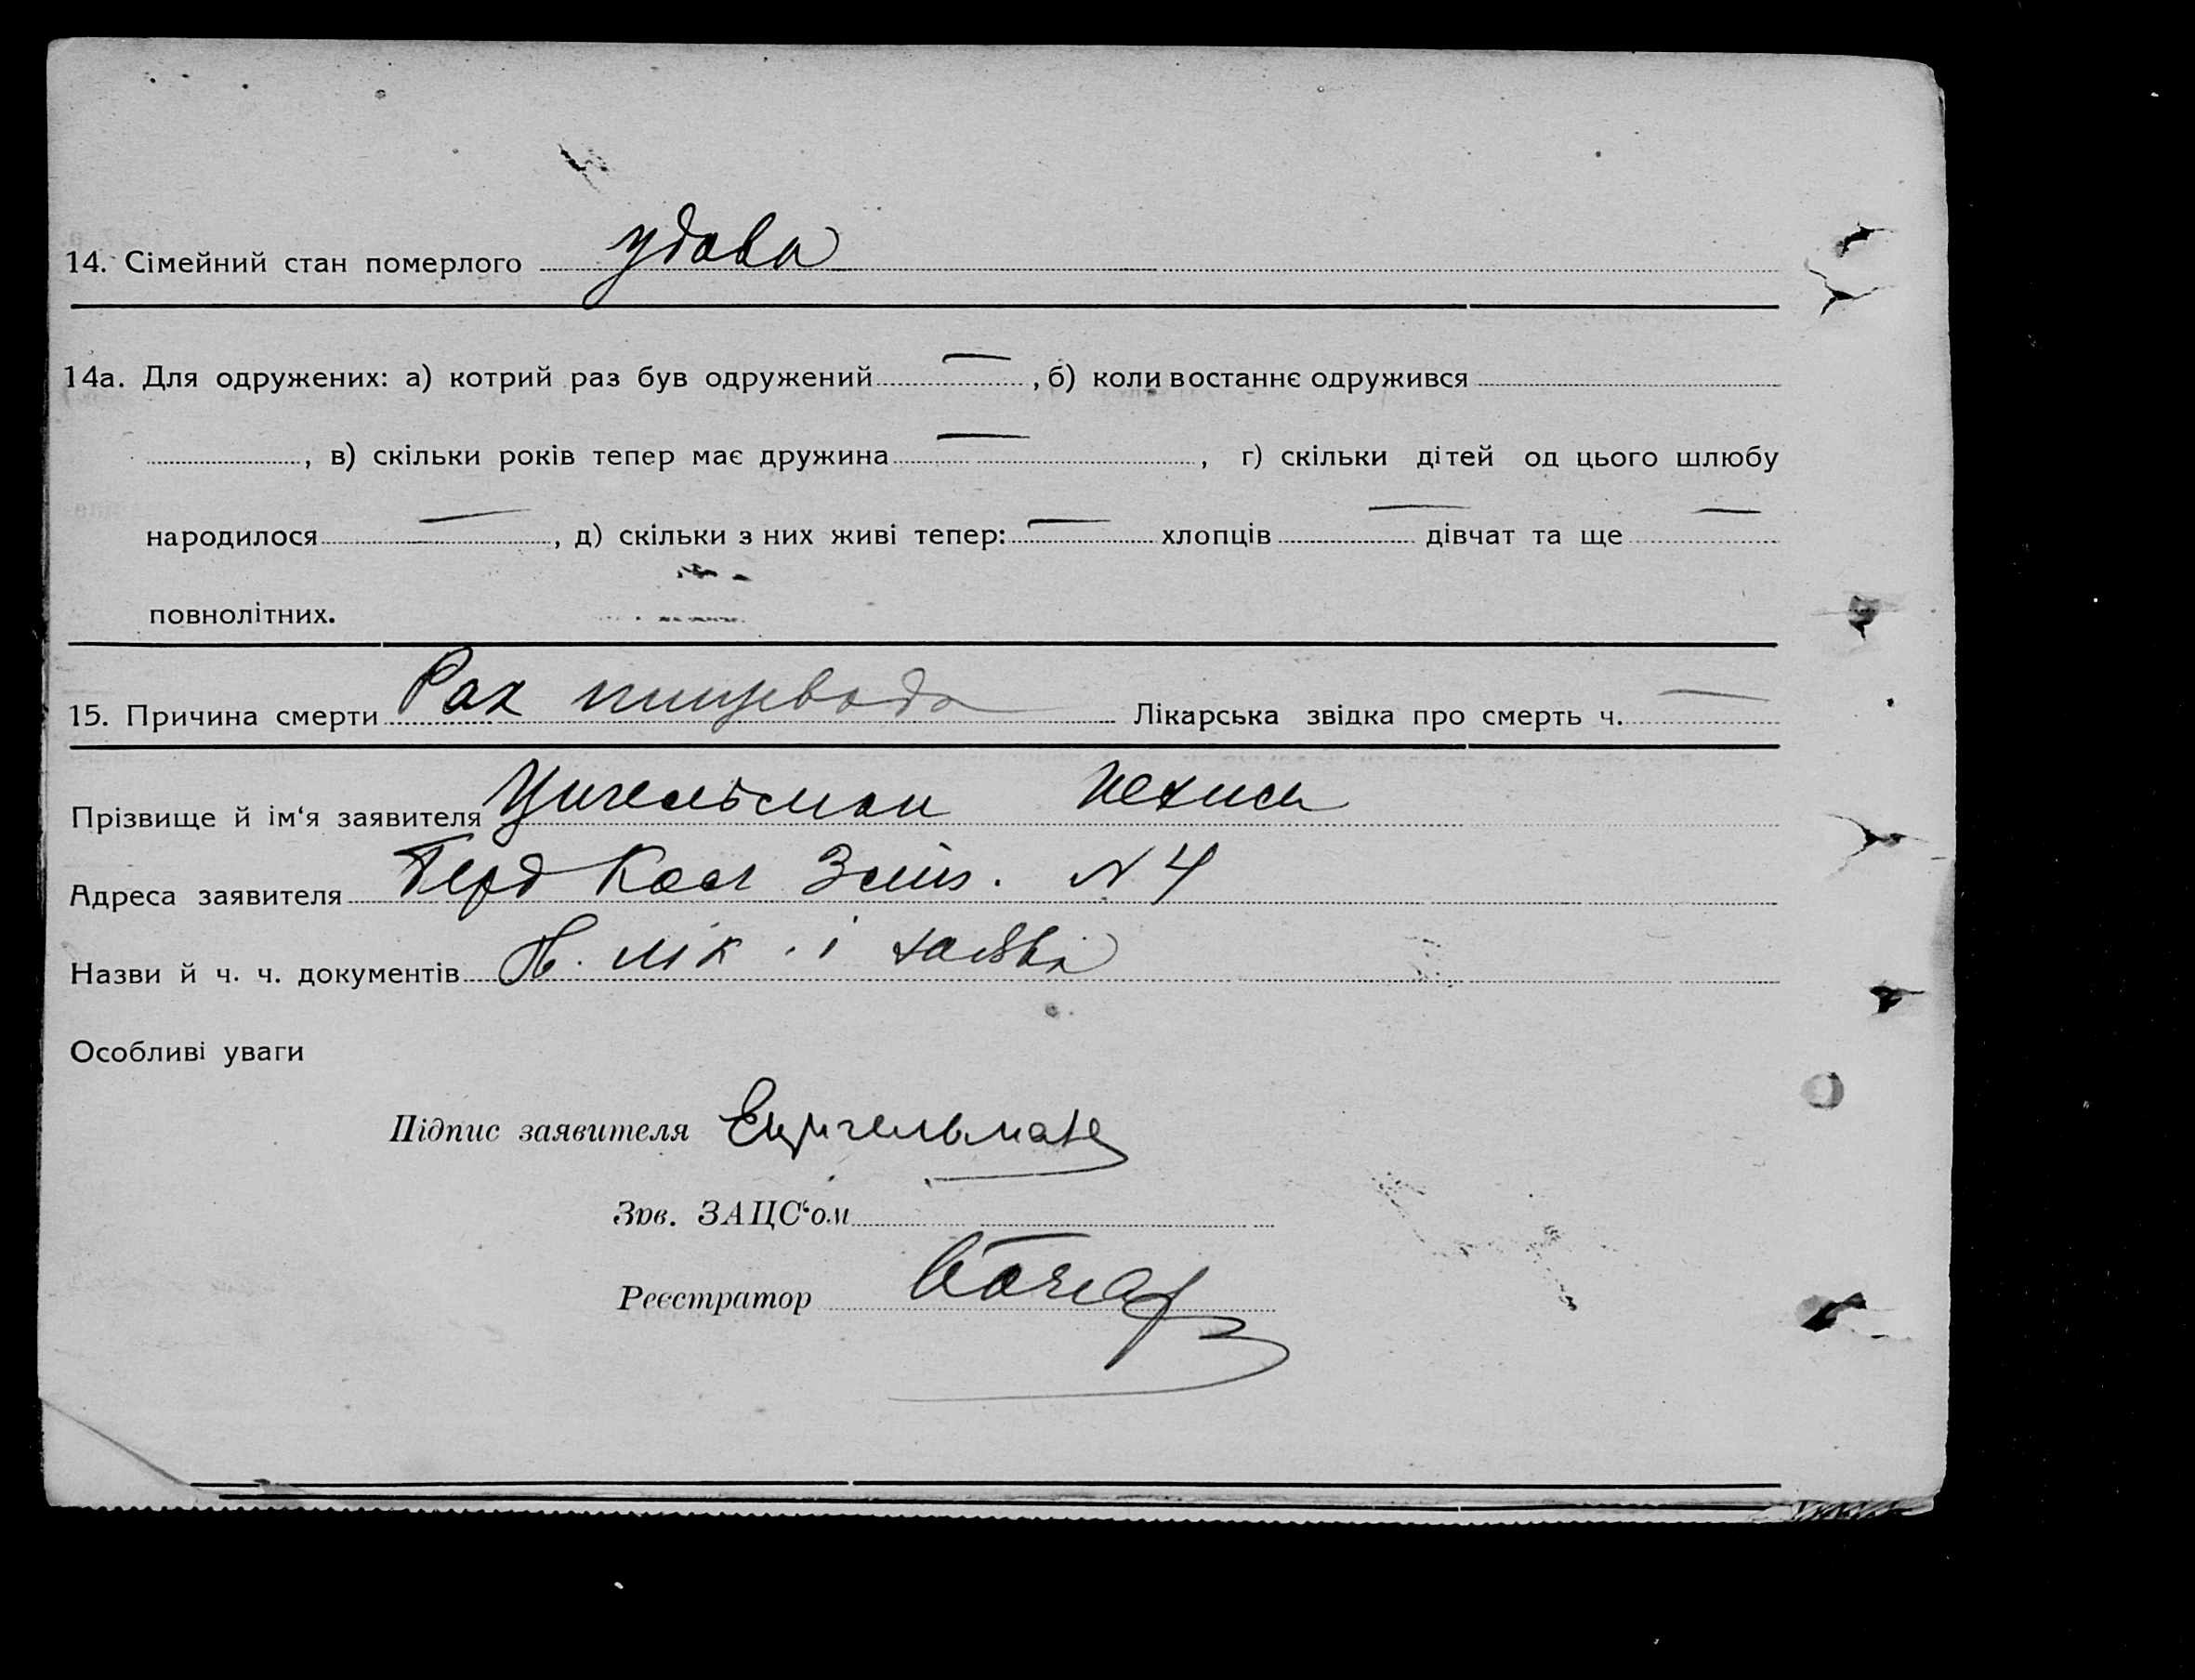 14. Сімейний стан померлого удова
14а. Для одружених: а) котрий раз був одружений — , б) коли востаннє одружився
, в) скільки років тепер має дружина — , г) скільки дітей од цього шлюбу
народилося — , д) скільки з них живі тепер: — хлопців — дівчат та ще —
повнолітних.
15. Причина смерти Рак пищевода Лікарська звідка про смерть ч. —
Прізвище й ім‘я заявителя Цигельман
Адреса заявителя Берд №4
Назви й ч. ч. документів лік. і заява
Особливі уваги
Підпис заявителя ЕЦигельман
Зав. ЗАЦС‘ом
Реєстратор